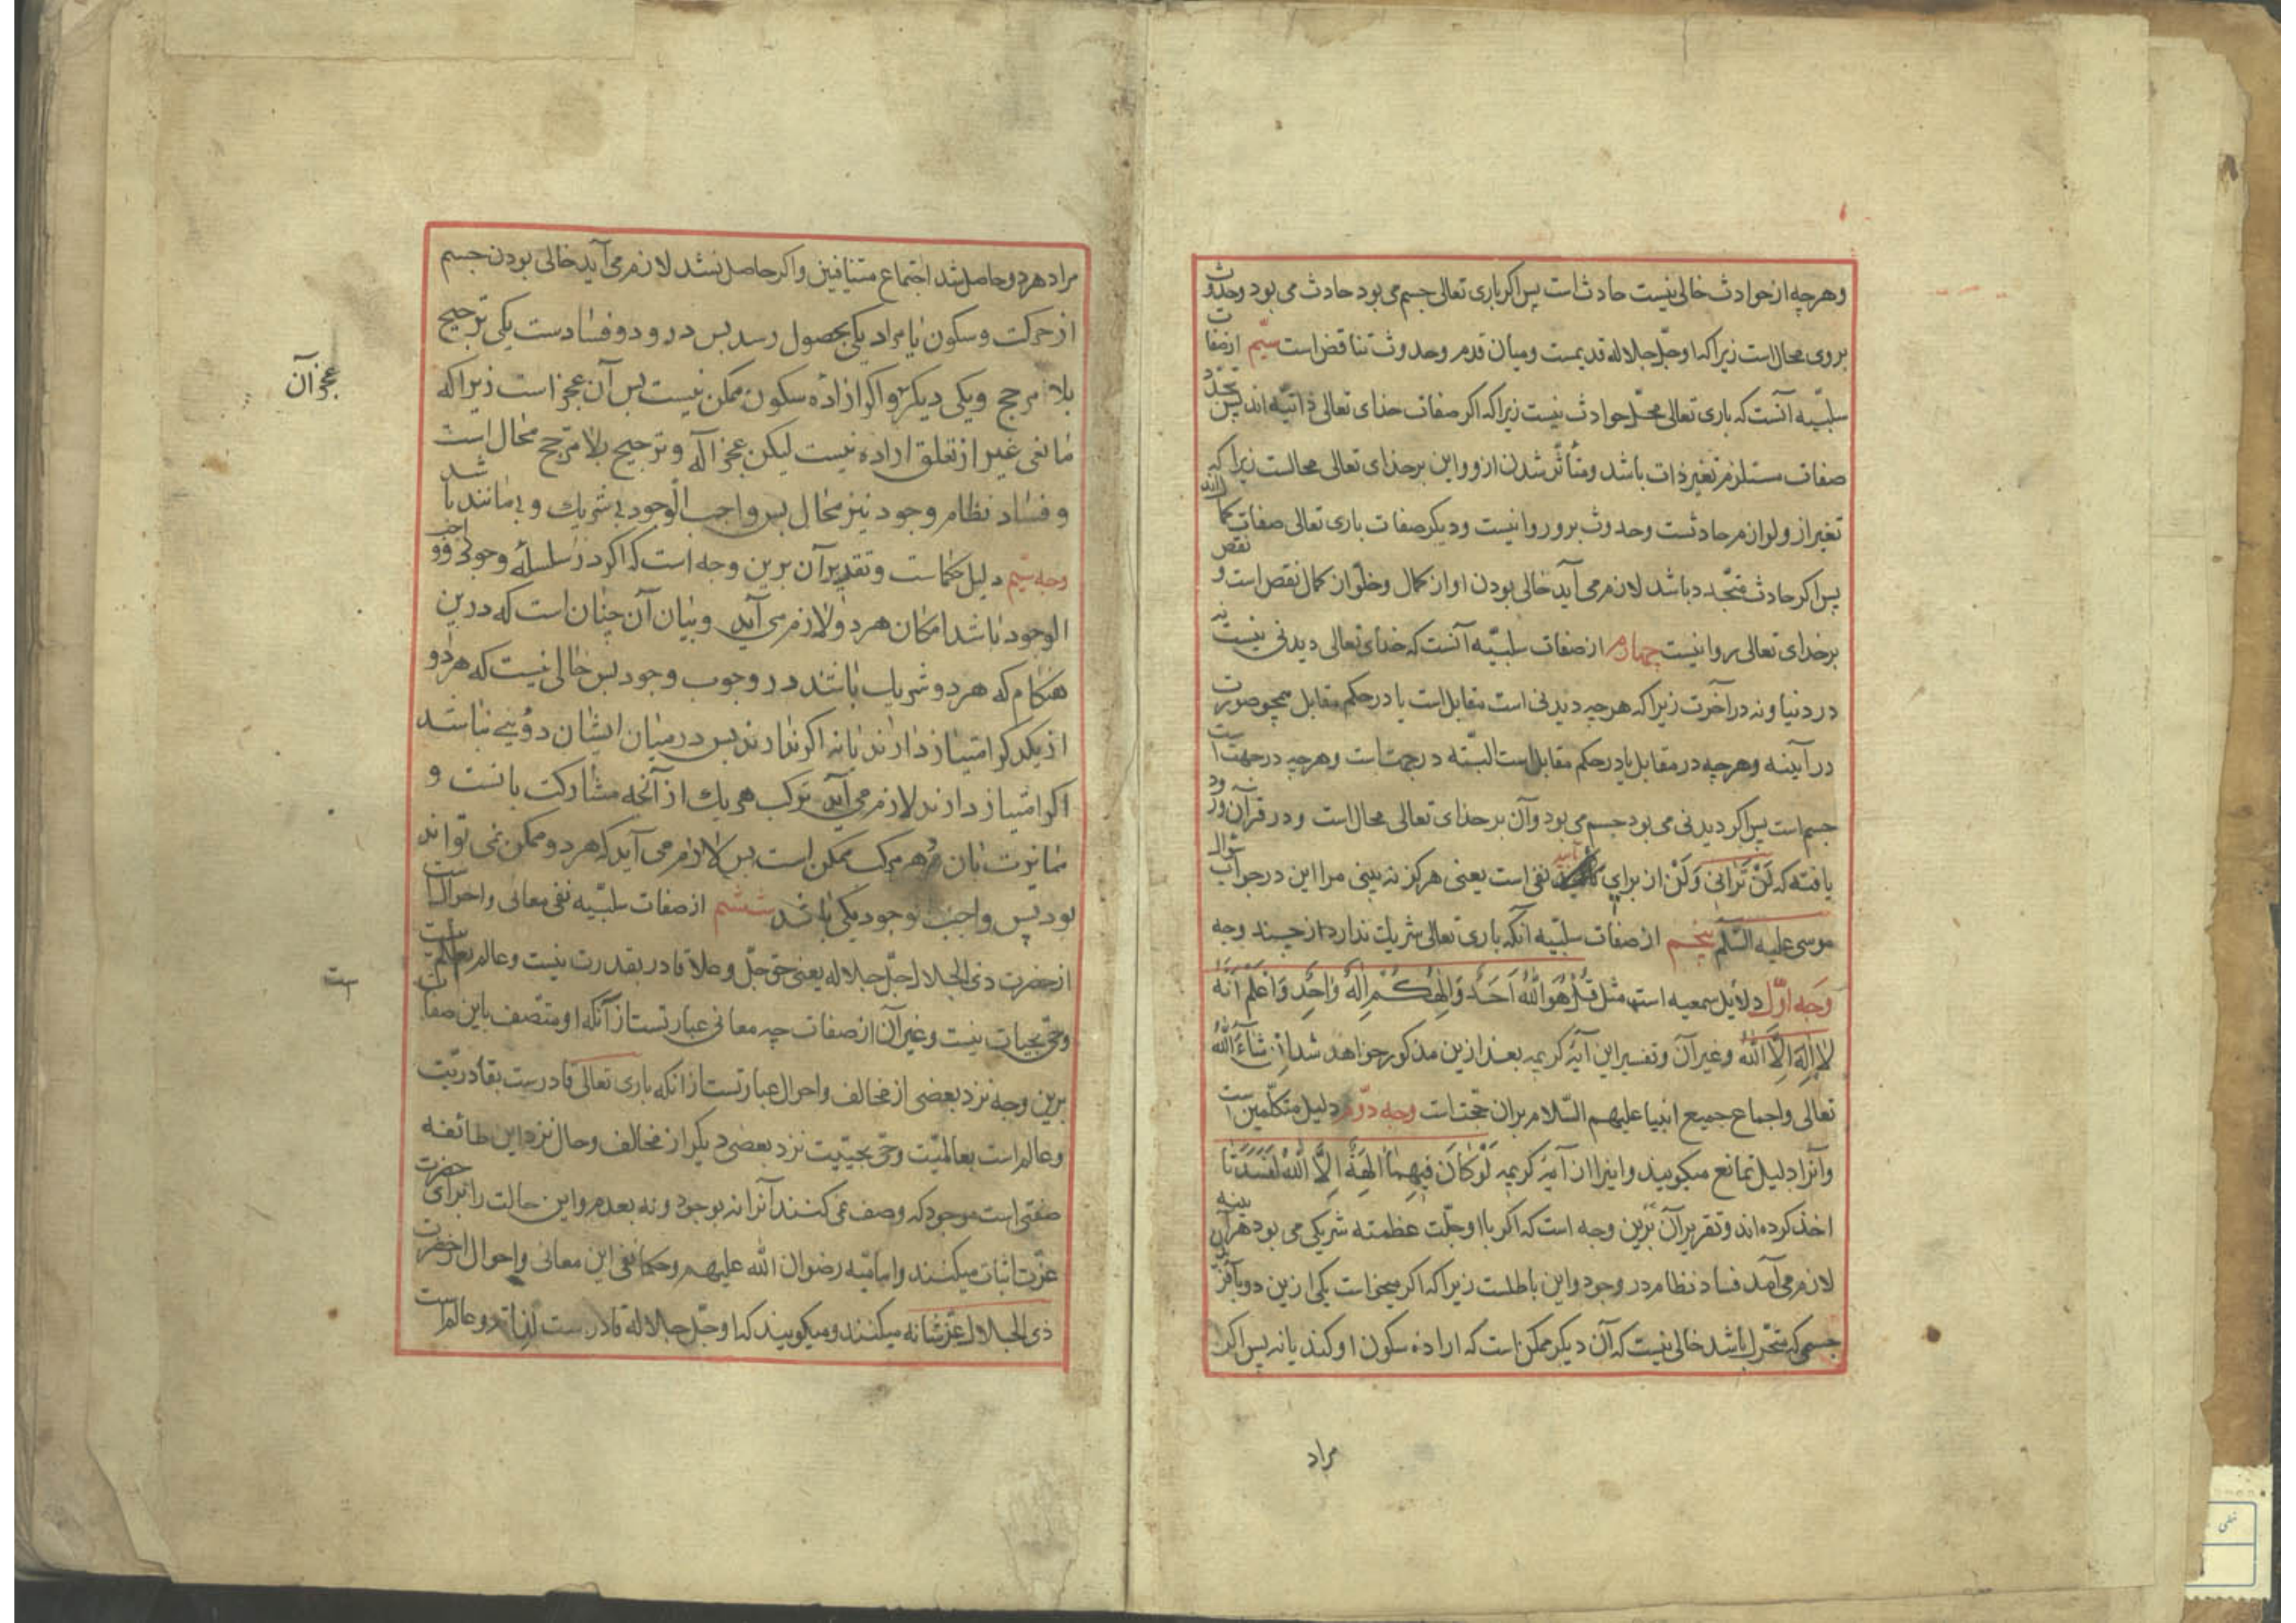 وهرچه از حوادث خالی نیست حادث است پس اکر باری تعالی جسم می بود حادث می بود وحدوث
بروی محال است زیرا که او جل جلاله قدیمست ومیان قدم وحدوث تناقض است سیّم از صفات
سلبیّه آنست که باری تعالی محلّ حوادث نیست زیرا که اکر صفات خدای تعالی ذاتیّه اند پس تجدّد
صفات مستلزم تغیر ذات باشد ومتأثّر شدن ازو واین بر خدای تعالی محالست زیرا که
تغیر از ولوازم حادثست وحدوث برو روا نیست ودیکر صفات باری تعالی صفات کمال اند
پس اکر حادث متجدد باشد لازم می آید خالی بودن او از کمال وخلوّ از کمال نقص است و نقص
بر خدای تعالی روا نیست چهارم از صفات سلبیّه آنست که خدای تعالی دیدنی نیست نه
در دنیا ونه در آخرت زیرا که هرچه دیدنی است مقابل است یا در حکم مقابل همچو صورت
در آینه وهرچه در مقابل یا در حکم مقابل است البتّه در جهت است وهرچه در جهت است
جسم است پس اکر دیدنی می بود جسم می بود وآن بر خدای تعالی محال است ودر قرآن ورود
یافته که لَنْ تَرانی وَلَنْ از برای تأبید نفی است یعنی هرکز نه بینی مرا این در جواب سؤال
موسی علیه السّلم پنجم از صفات سلبیّه آنکه باری تعالی شریک ندارد از چند وجه
وجه اوّل دلایل سمعیه است مثل قُلْ هُوَ اللّٰهُ اَحَدٌ وَاِلٰهُكُمْ اِلٰهٌ وٰاحِدٌ وَاعْلَمْ اَنَّهُ
لاٰ اِلٰهَ اِلاَّ اللّٰهُ وغیر آن وتفسیر این آیهٔ کریمه بعد ازین مذکور خواهد شد اِنْ شٰآءَ اللّٰهُ
تعالی واجماع جمیع انبیا علیهم السّلام بران حجّت است وجه دوّم دلیل متکلّمین است
وآنرا دلیل تمانع میکویند واینرا از آیهٔ کریمه لَوْ كٰانَ فِيهِمٰا اٰلِهَةٌ اِلاَّ اللّٰهُ لَفَسَدَتٰا
اخذ کرده اند وتقریر آن برین وجه است که اکر با او جلّت عظمته شریکی می بود هرآینه
لازم می آمد فساد نظام در وجود واین باطلست زیرا که اکر میخواست یکی ازین دو
جسمی که متحرّک باشد خالی نیست که آن دیکر ممکن است که اراده سکون او کند یا نه پس اکر
مراد
مراد هردو حاصل شد اجتماع متنافیین واکر حاصل نشد لازم می آید خالی بودن جسم
از حرکت وسکون یا مراد یکی بحصول رسد پس درو دو فسادست یکی ترجیح
بلا مرجح ویکی دیکر واکر اراده سکون ممکن نیست پس آن عجز است زیرا که
عجز آن
مانعی غیر از تعلق اراده نیست لیکن عجز اله وترجیح بلا مرجح محال است
وفساد نظام وجود نیز محال پس واجب الوجود بی شریک وبی مانند باشد
وجه سیّم دلیل حکماست وتقدیر آن برین وجه است که اکر در سلسلهٔ وجود دو واجب
الوجود باشد امکان هردو لازم می آید وبیان آن چنان است که درین
هنکام که هردو شریک باشند در وجوب وجود پس خالی نیست که هردو
از یکدیکر امتیاز دارند یا نه اکر ندارند پس در میان ایشان دوئیی نباشد
اکر امتیاز دارند لازم می آید ترکب هر یک از آنچه مشارکت بانست و
ممایزت بان وهر مرکب ممکن است پس لازم می آید که هردو ممکن نمی تواند
بود پس واجب الوجود یکی باشد ششم از صفات سلبیّه نفی معانی واحوال است
از حضرت ذی الجلال جلّ جلاله یعنی حق جلّ وعلا قادر بقدرت نیست وعالم بعلم
ست
وحیّ بحیات نیست وغیر آن از صفات چه معانی عبارتست از آنکه او متصف باین صفات
برین وجه نزد بعضی از مخالف واحوال عبارتست از آنکه باری تعالی قادرست بقادریّت
وعالم است بعالمیّت وحیّ بحیّیّت نزد بعضی دیکر از مخالف وحال نزد این طائفه
صفتی است موجود که وصف نمی کنند آنرا نه بوجود ونه بعدم واین حالت را برای حضرت
عزّت اثبات میکنند وامامیّه رضوان الله علیهم وحکما نفی این معانی واحوال از حضرت
ذی الجلال عزّ شانه میکنند ومیکویند که او جلّ جلاله قادرست لذاته وعالم است